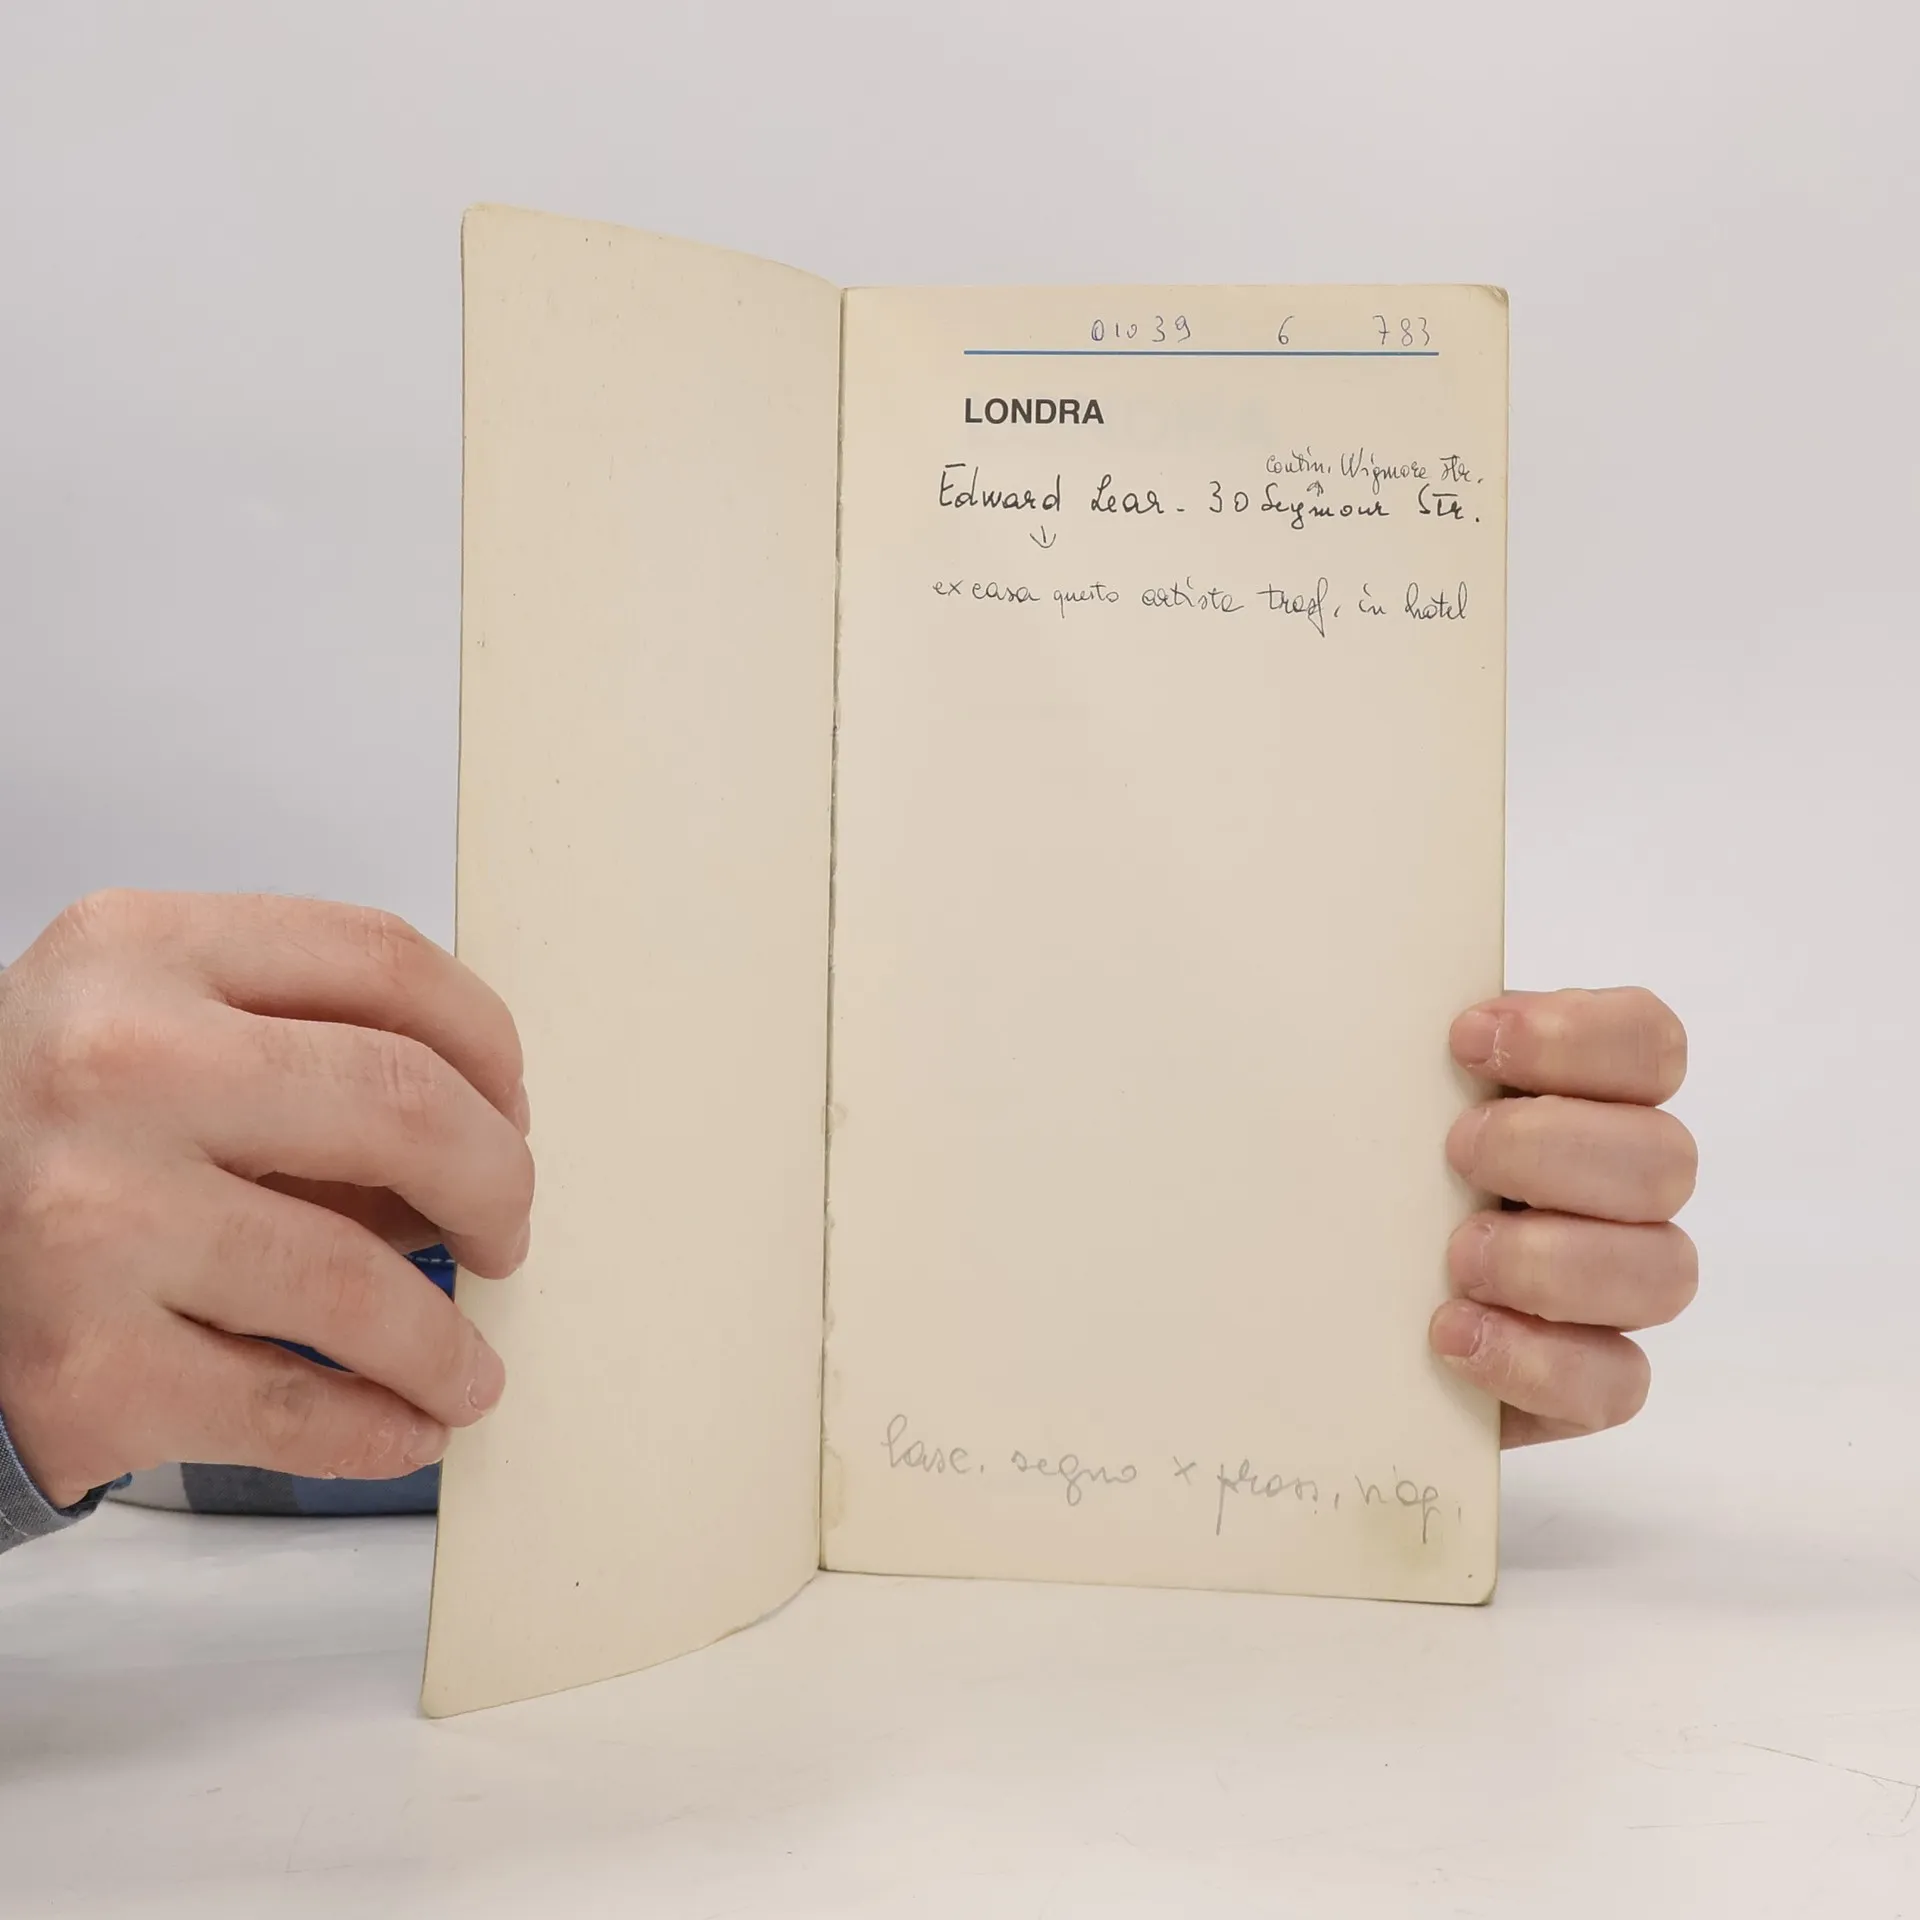 01039 6 783
LONDRA
contin. Wigmore Str.
Edward Lear - 30 Seymour Str.
ex casa questo artista trasf. in hôtel
lasc. segno x pross. viag.